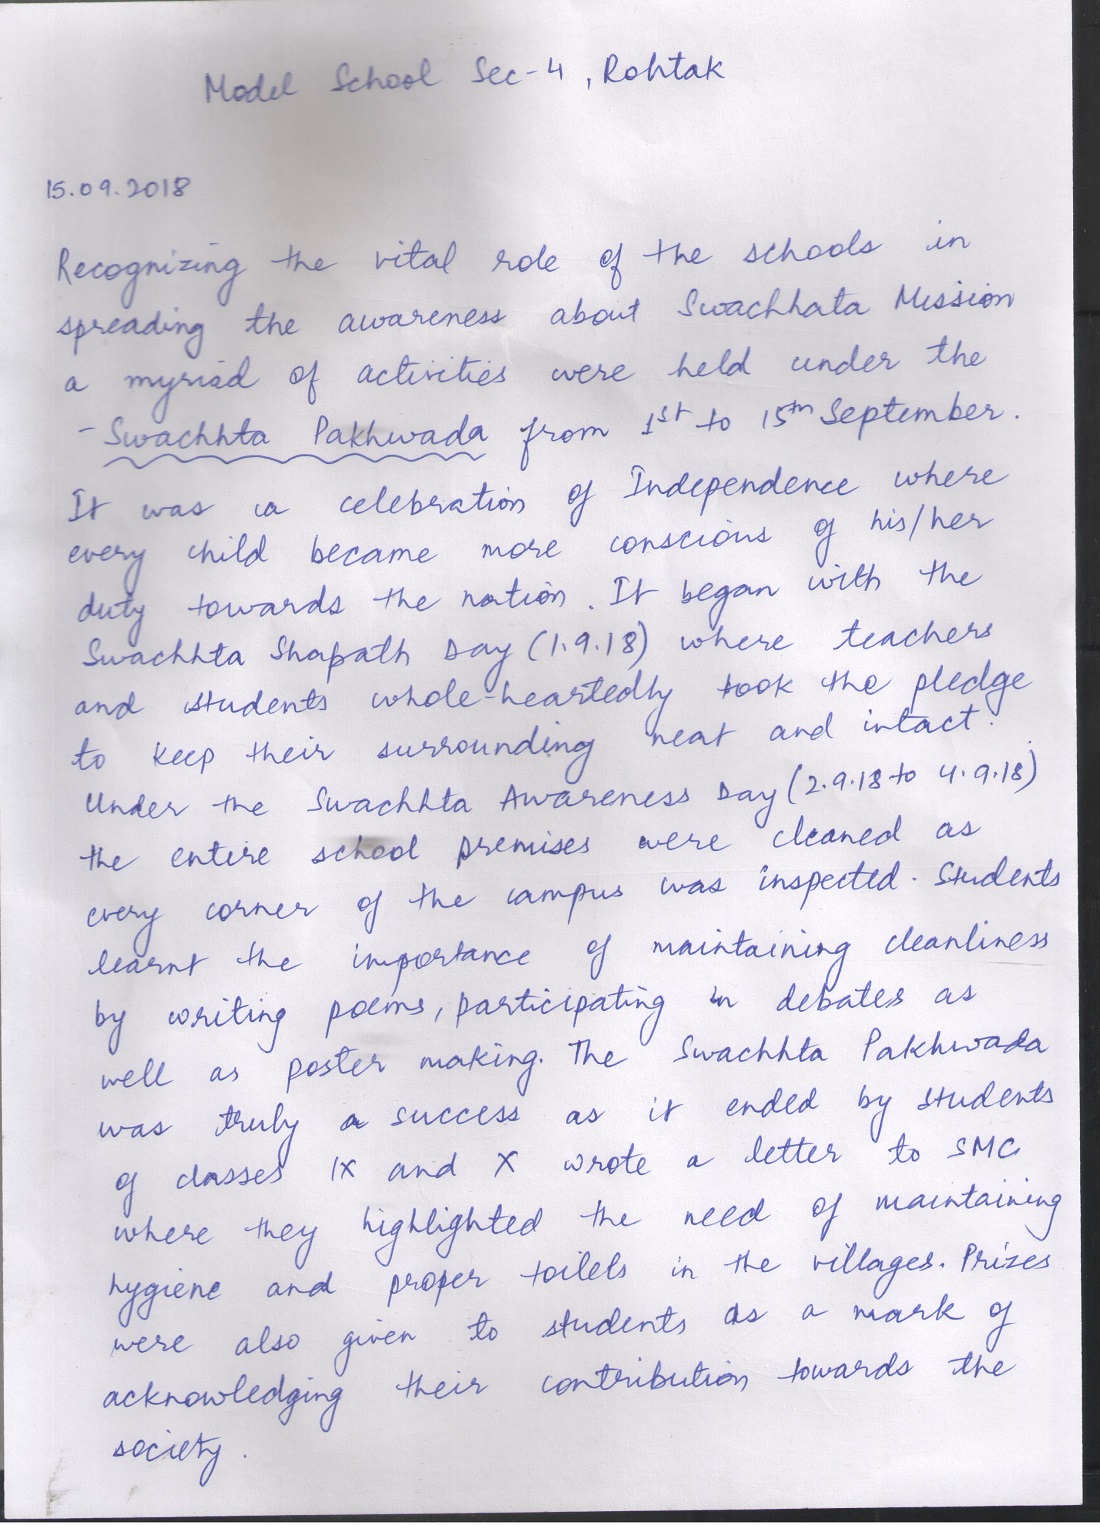 Model School Sec-4, Rohtak
15.09.2018
Recognizing the vital role of the schools in
spreading the awareness about Swachhata Mission
a myriad of activities were held under the
- Swachhta Pakhwada from 1st to 15th September.
It was a celebration of Independence where
every child became more conscious of his/her
duty towards the nation. It began with the
Swachhta Shapath Day (1.9.18) where teachers
and students whole-heartedly took the pledge
to keep their surrounding neat and intact.
Under the Swachhta Awareness Day (2.9.18 to 4.9.18)
the entire school premises were cleaned as
every corner of the campus was inspected. Students
learnt the importance of maintaining cleanliness
by writing poems, participating in debates as
well as poster making. The Swachhta Pakhwada
was truly a success as it ended by students
of classes IX and X wrote a letter to SMC
where they highlighted the need of maintaining
hygiene and proper toilets in the villages. Prizes
were also given to students as a mark of
acknowledging their contribution towards the
society.